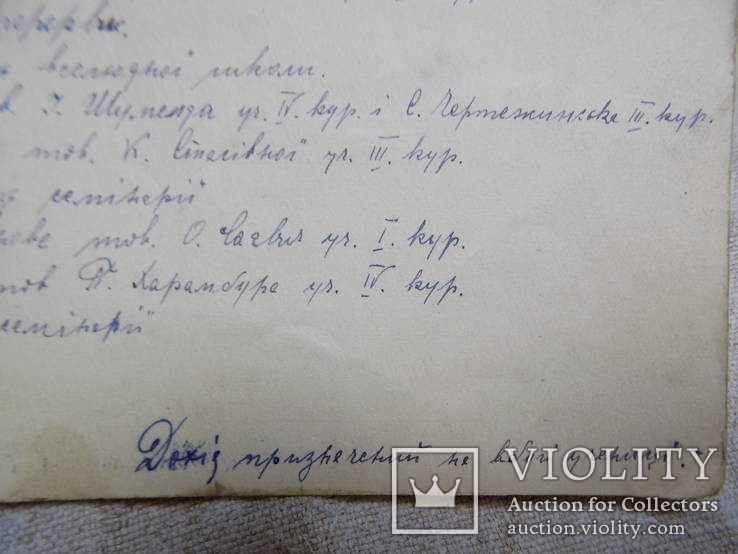 перерви.
вселюдної школи.
Г. Шуменда уч. IV. кур. і С. Чертежинська III. кур.
тов. К. Спасівної уч. III. кур.
семінарії"
тов. О. уч. I. кур.
тов П. Харамбура уч. IV. кур.
семінарії"
Дохід призначений на
VIOLITY
Auction for Collectors
auction.violity.com